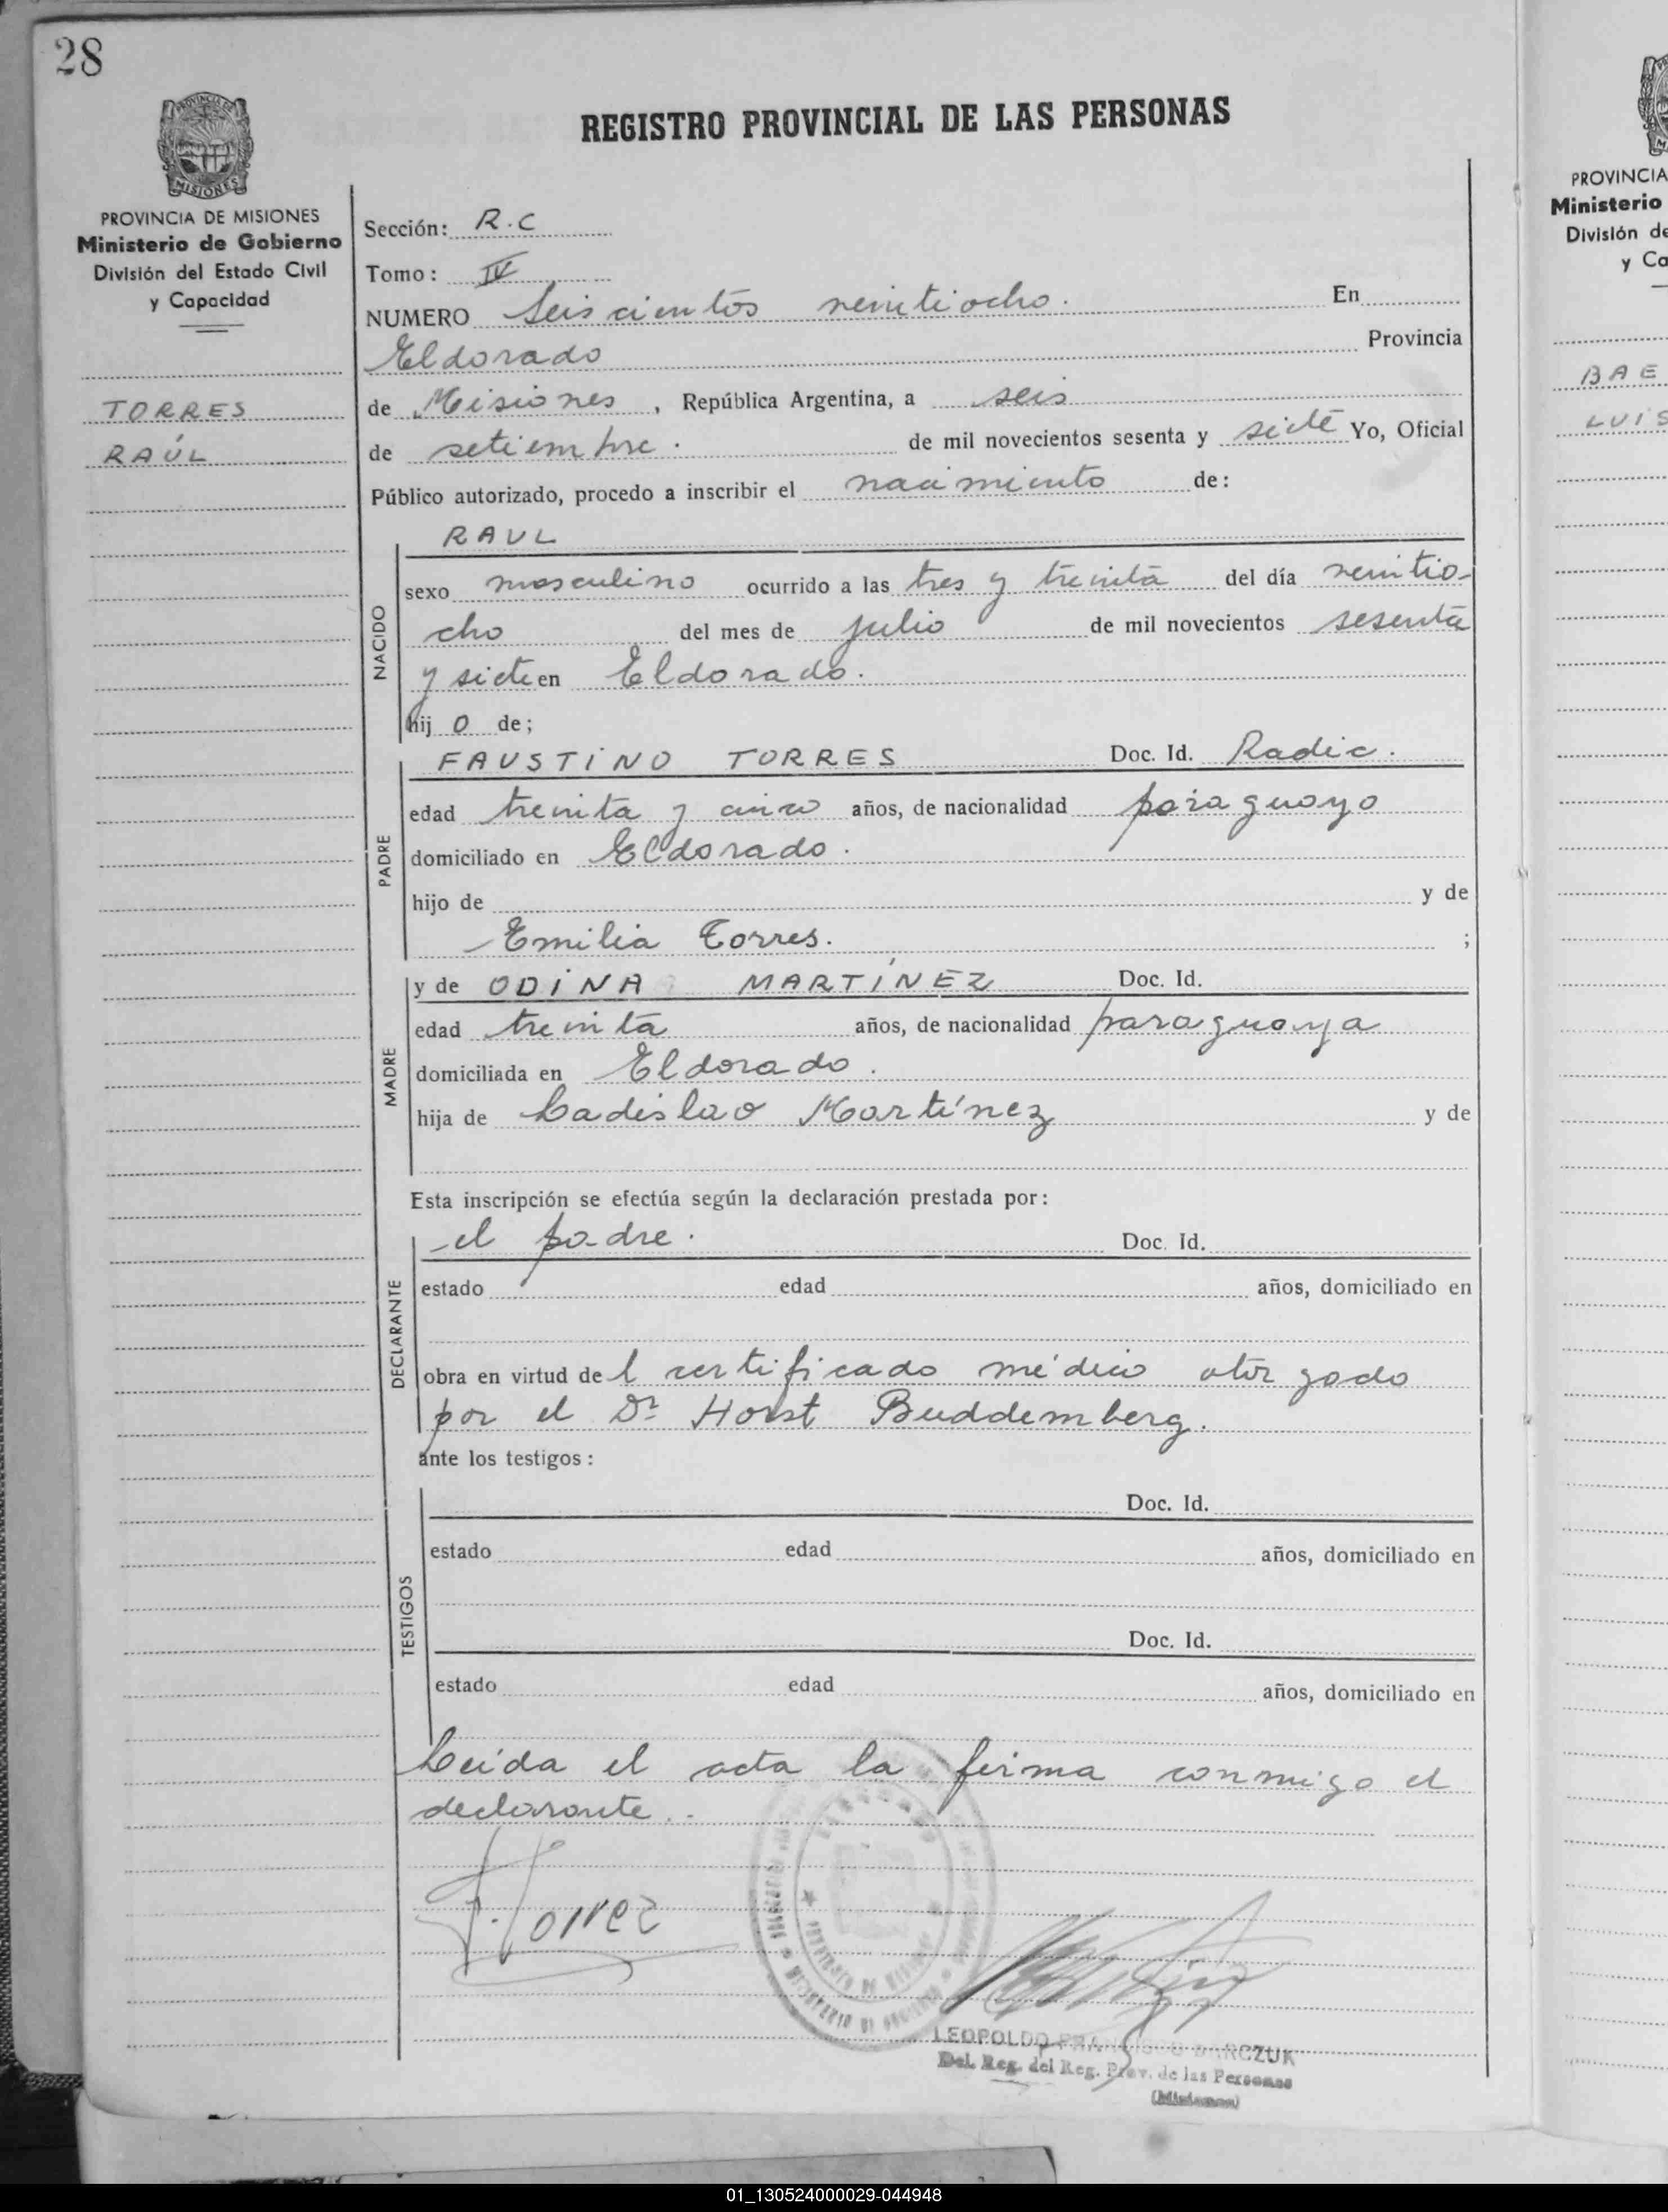 28
PROVINCIA DE
MISIONES
REGISTRO PROVINCIAL DE LAS PERSONAS
PROVINCIA DE MISIONES
Ministerio de Gobierno
División del Estado Civil
y Capacidad
TORRES
RAÚL
Sección: R.C
Tomo: IV
NUMERO Seiscientos veintiocho. En
Eldorado Provincia
de Misiones, República Argentina, a seis
de setiembre. de mil novecientos sesenta y siete Yo, Oficial
Público autorizado, procedo a inscribir el nacimiento de:
NACIDO
RAUL
sexo masculino ocurrido a las tres y treinta del día veintio-
cho del mes de julio de mil novecientos sesenta
y siete en Eldorado.
hij o de;
PADRE
FAUSTINO TORRES Doc. Id. Radic.
edad treinta y cinco años, de nacionalidad paraguayo
domiciliado en Eldorado.
hijo de y de
Emilia Torres. ;
MADRE
y de ODINA MARTÍNEZ Doc. Id.
edad treinta años, de nacionalidad paraguaya
domiciliada en Eldorado.
hija de Ladislao Martínez y de
Esta inscripción se efectúa según la declaración prestada por:
DECLARANTE
el padre. Doc. Id.
estado edad años, domiciliado en
obra en virtud de l certificado médico otorgado
por el Dr Horst Buddemberg.
ante los testigos:
TESTIGOS
Doc. Id.
estado edad años, domiciliado en
Doc. Id.
estado edad años, domiciliado en
Leida el acta la firma conmigo el
declarante.
F. Torrez
LEOPOLDO FRANCISCO
Del. Reg. del Reg. Prov. de las Personas
(Misiones)
PROVINCIA
Ministerio
División de
y Ca
BAE
LUIS
01_130524000029-044948